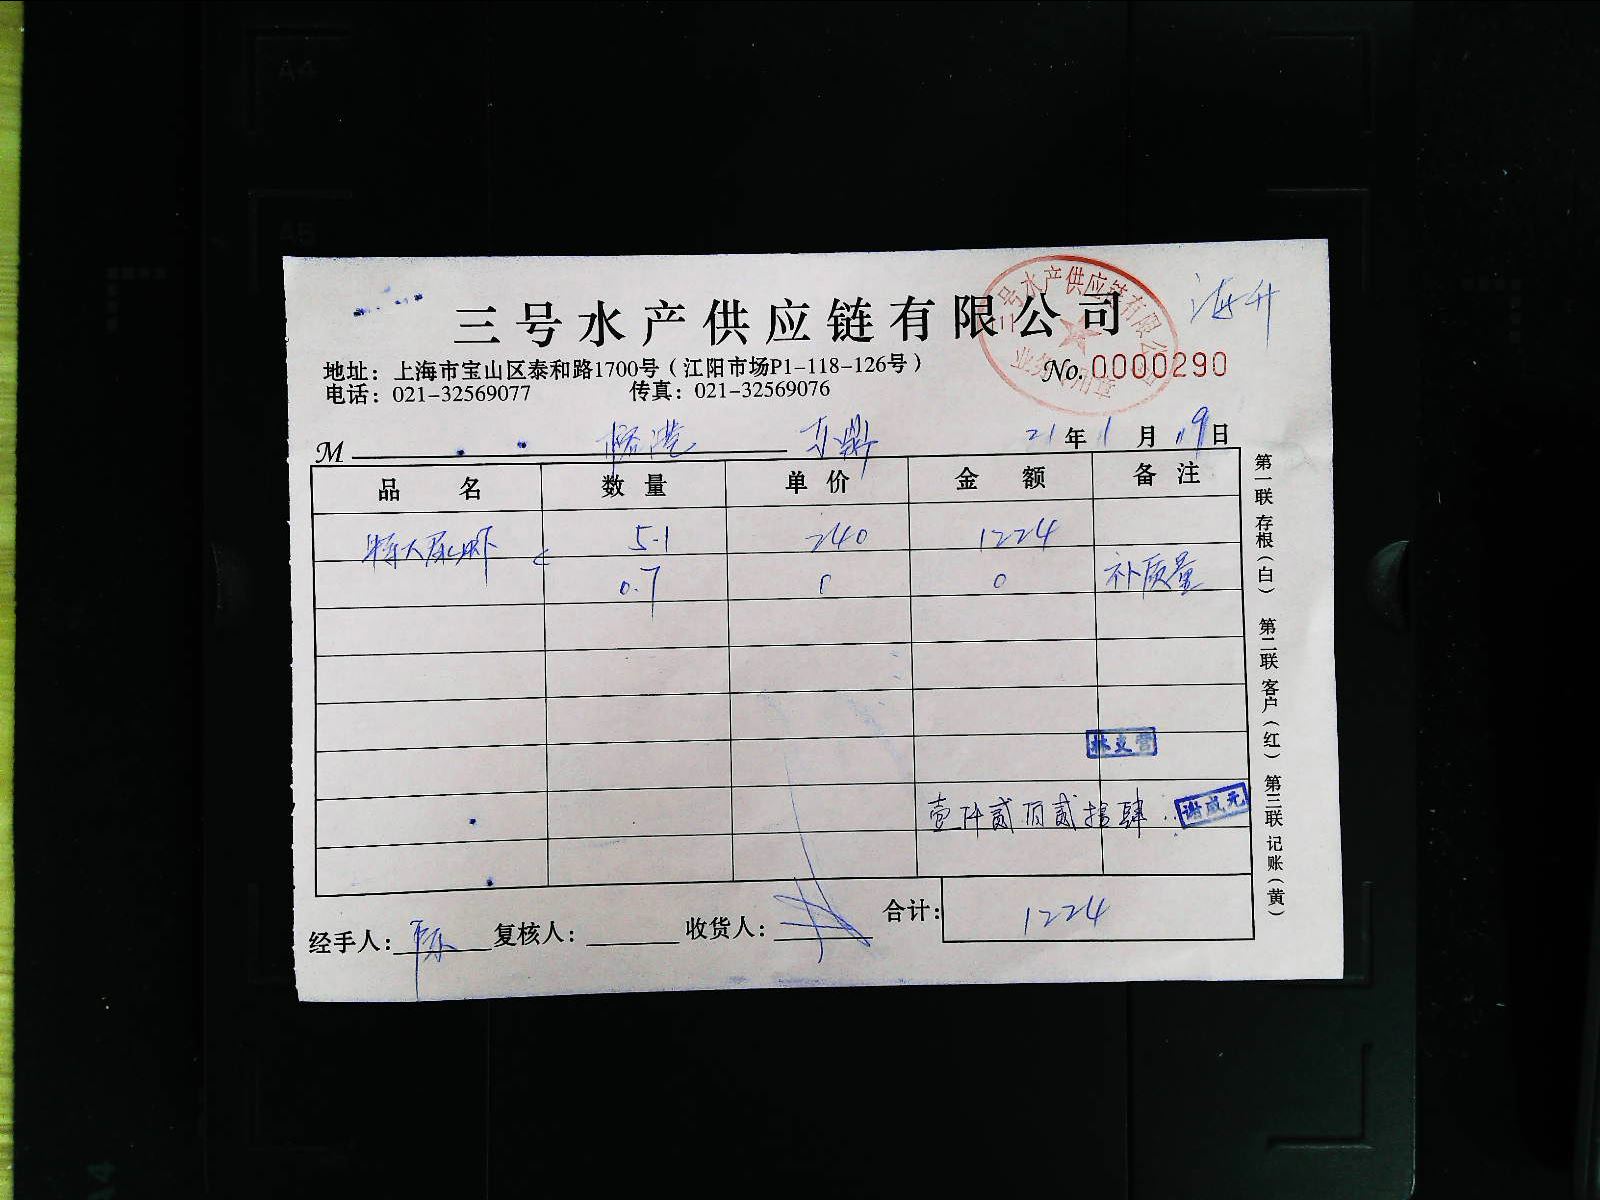 A4
A5
三号水产供应链有限公司
三号水产供应链有限公司
业务专用章
海升
地址：上海市宝山区泰和路1700号（江阳市场P1-118-126号）
No.0000290
电话：021-32569077 传真：021-32569076
M 21年1月19日
品名 数量 单价 金额 备注
特大尿虾 5.1 240 1224
0.7 0 0 补质量
谢成元
壹仟贰佰贰拾肆
合计：1224
经手人： 复核人： 收货人：
第一联 存根（白） 第二联 客户（红） 第三联 记账（黄）
A4